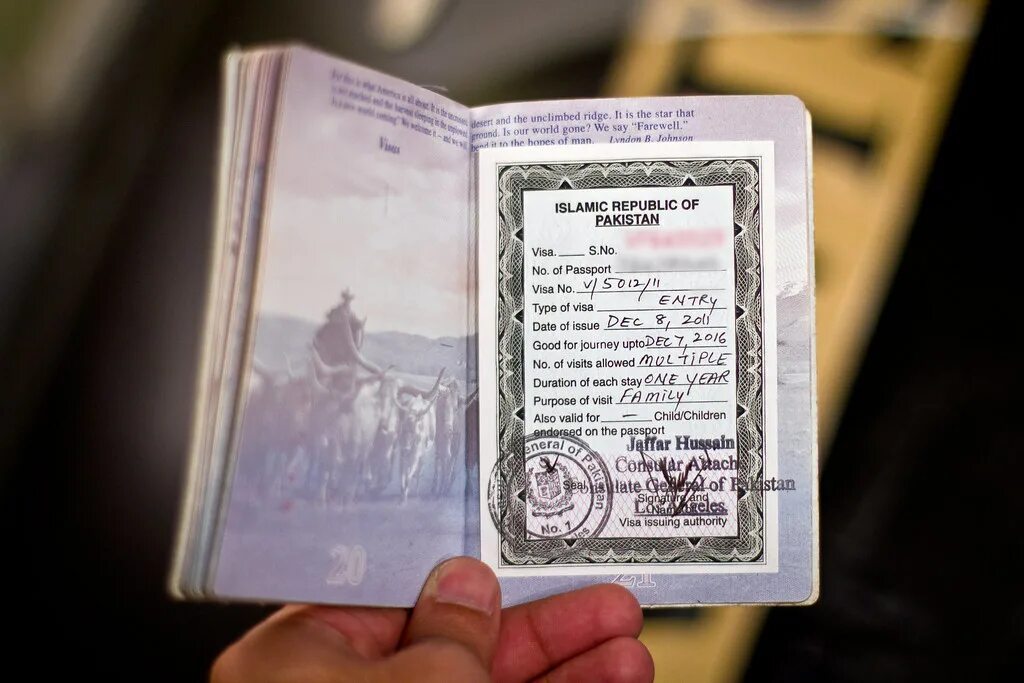 For this is what America is all about. It is the uncrossed
"Farewell."
Visas
desert and the unclimbed ridge. It is the star that
ground. Is our world gone? We say "Farewell."
bend it to the hopes of man. Lyndon B. Johnson
ISLAMIC REPUBLIC OF
PAKISTAN
Visa. ___ S.No.
No. of Passport
Visa No. V/5012/11
Type of visa ENTRY
Date of issue DEC 8, 2011
Good for journey upto DEC 7, 2016
No. of visits allowed MULTIPLE
Duration of each stay ONE YEAR
Purpose of visit FAMILY
Also valid for — Child/Children
endorsed on the passport
Jaffar Hussain
Consular Attach
Consulate General of Pakistan
Los Angeles
Seal
Signature and
Name
Visa issuing authority
General of Pakistan
No. 1
20
21